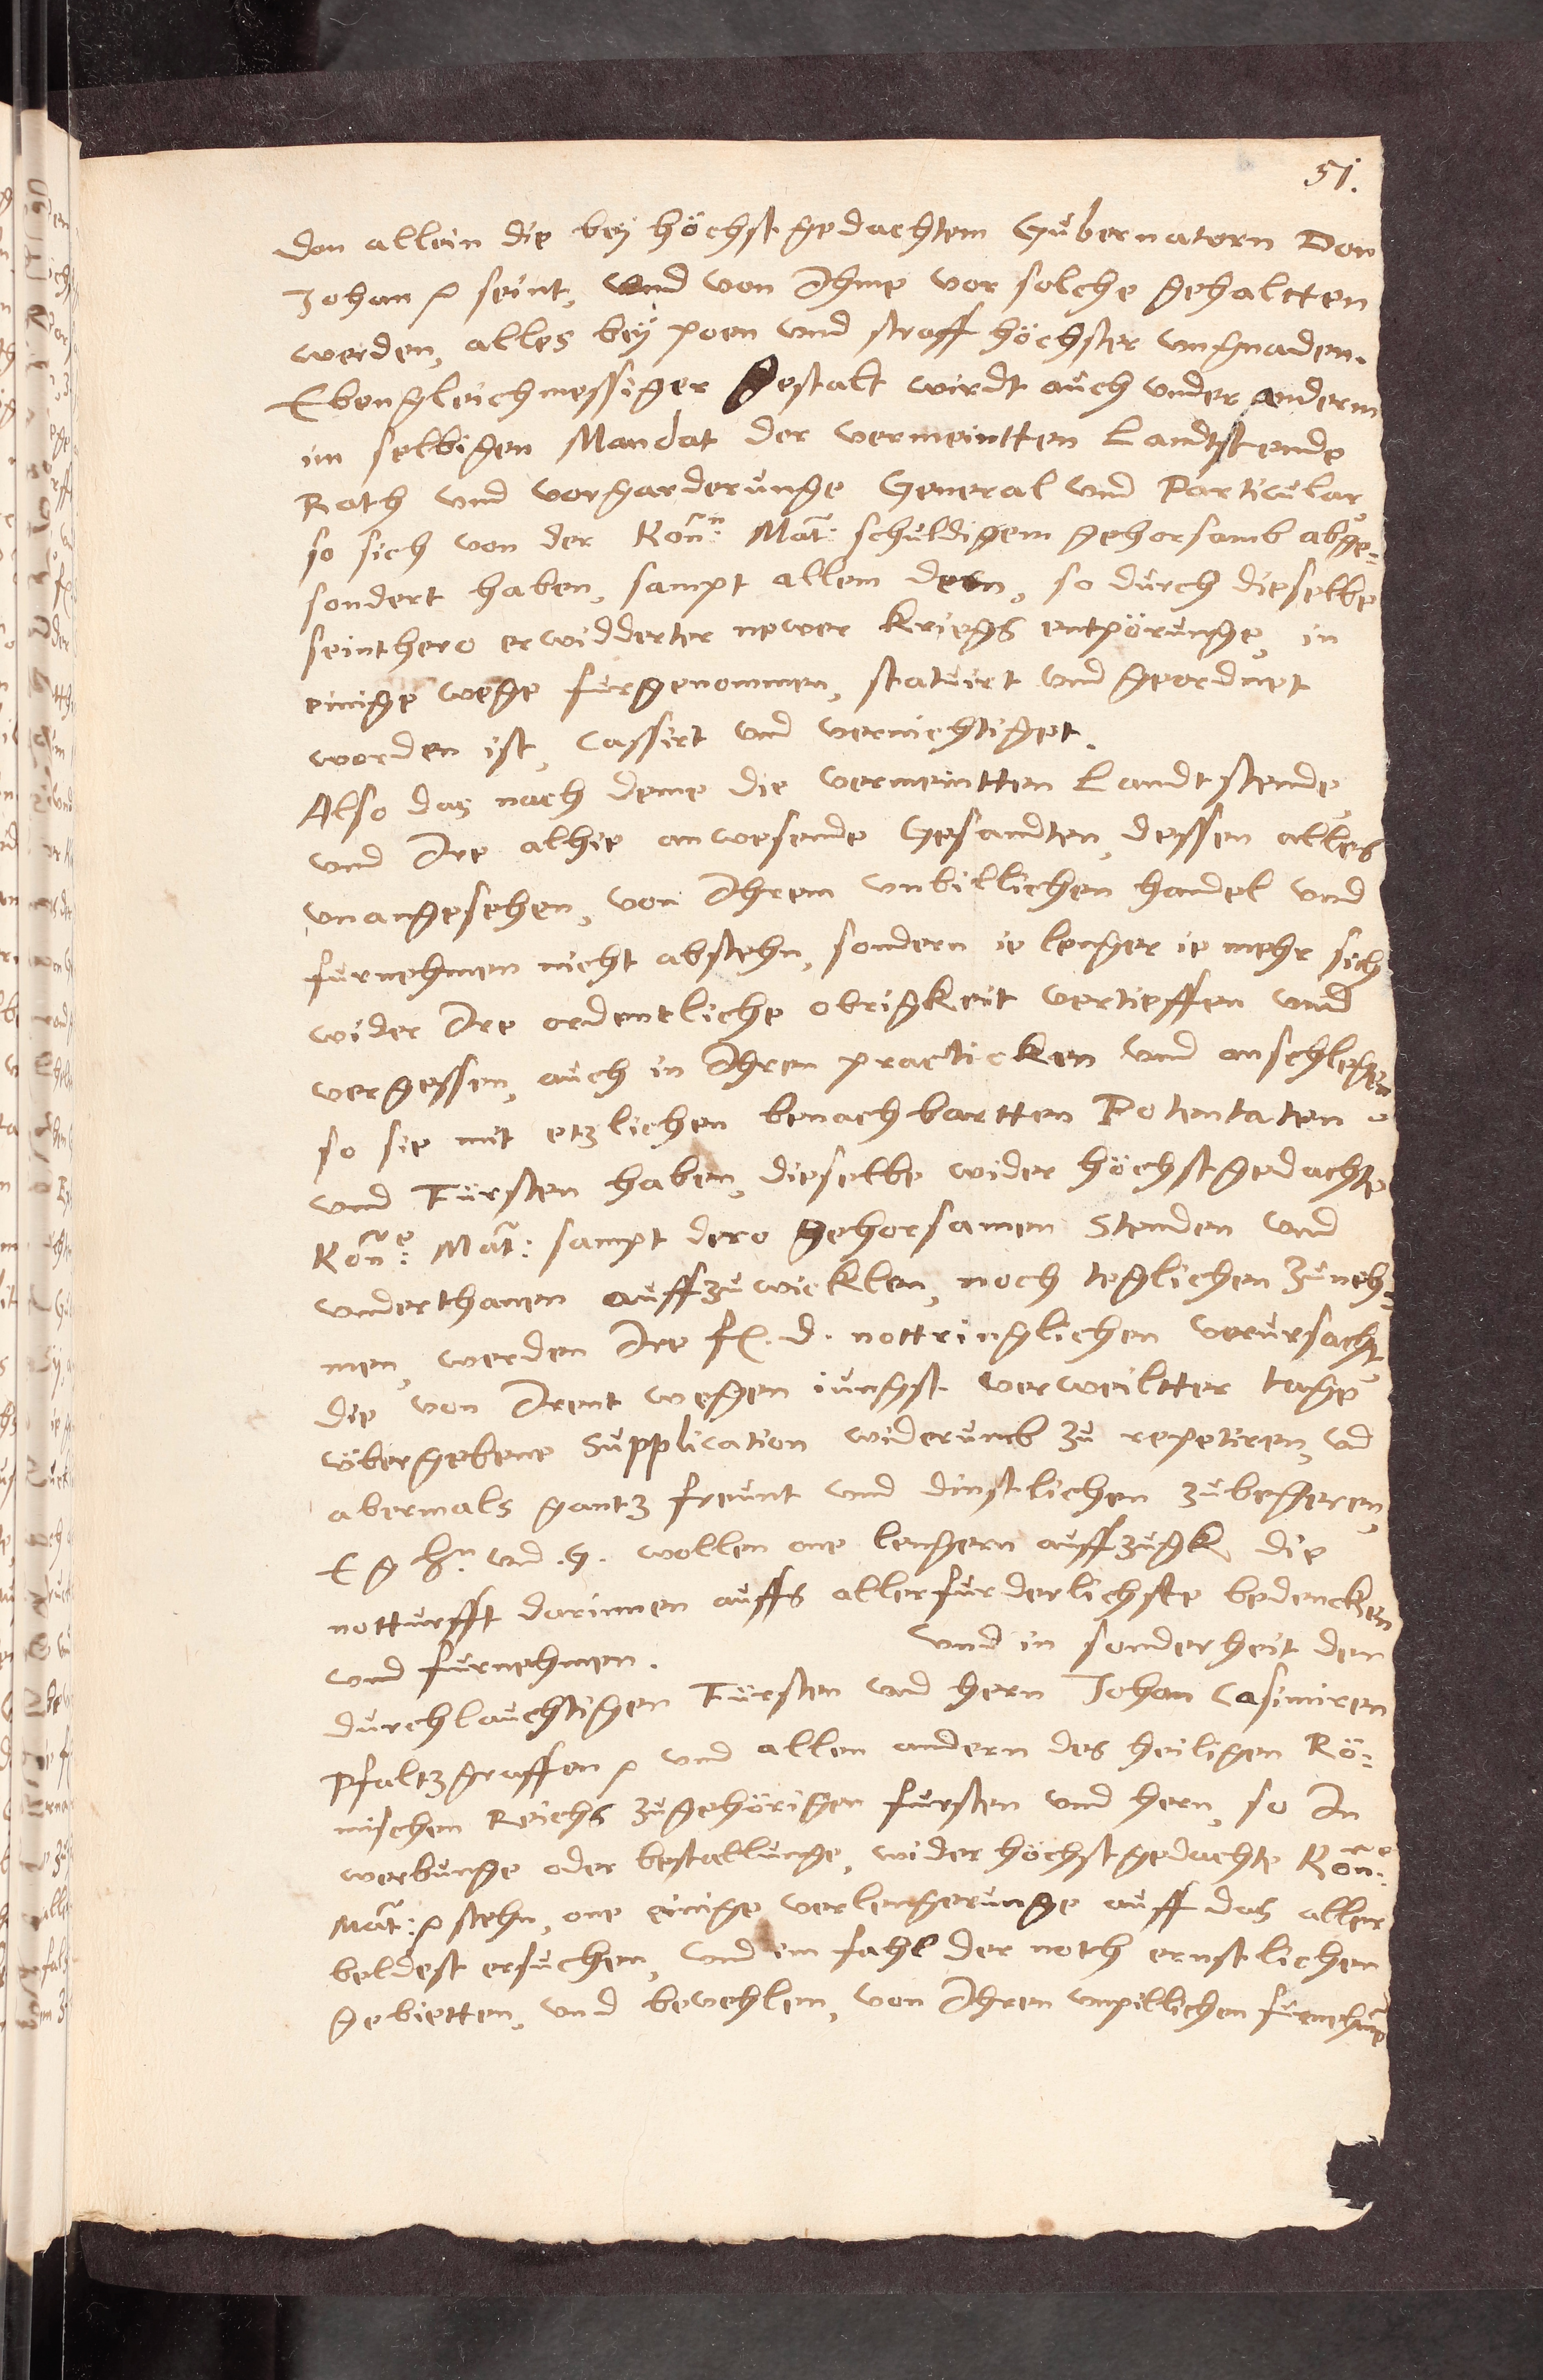 51.
den allein die bey höchstgedachtem Gubernatorn Don
Johan p seint, vnd von Ihme vor solche gehaltten
werden, alles bey poen vnd straff höchster vngnaden.
Ebengleichmessiger gestalt wirdt auch vnder anderm
im selbigen Mandat der vermeintten Landtstende
Rath vnd vorgarderunge General vnd Particular,
so sich von der Kön:n Mat: schuldigem gehorsamb abge-
sondert haben, sampt allem dem, so durch dieselbe
seinthero erwidderter newer kriegs entpörunge, in
einige wege furgenommen, statuirt vnd geordnet
worden ist, Cassirt vnd vernichtiget.
Also das nach deme die vermeintten Landtstende,
vnd Ire alhie anwesende Gesandten, dessen alles
vnangesehen, von Ihrem vnbillichen handel vnd
furnehmen nicht abstehn, sondern ie lenger ie mehr sich
wider Ire ordentliche obrigkeit vertieffen vnd
vergessen, auch in Ihren practicken vnd anschlegen
so sie mit etzlichen benachbartten Potentaten
vnd Fürsten haben, dieselbe wider höchstgedachte
Kön:e Mat: sampt dero gehorsamen Stenden vnd
vnderthanen auffzuwicklen, noch teglichen zuneh-
men, werden Ire fl. d. nottringlichen verursacht
die von Irent wegen iungst verweiltter tage
übergebene Supplication widerumb zu repetiren, vnd
abermals gantz freunt vnd dinstlichen zubegeren,
E g hn: vnd .g. wollen one lengern auffzugk die
notturfft darinnen auffs allerfurderlichste bedencken
vnd furnehmen. Vnd in sonderheit den
durchlauchtigen Fürsten vnd hern Johan Casimiren
Pfaltzgraffen p vnd allen andern des heiligen Rö-
mischen Reichs zugehörigen fursten vnd hern, so In
werbunge oder bestallunge, wider höchstgedachte Kön:e
Mat: p stehn, one einige verlengerunge auff das aller
beldest ersuchen, vnd im fahl der noth ernstlichen
gebietten, vnd bevehlen, von Ihren vnpillichen furnehmen